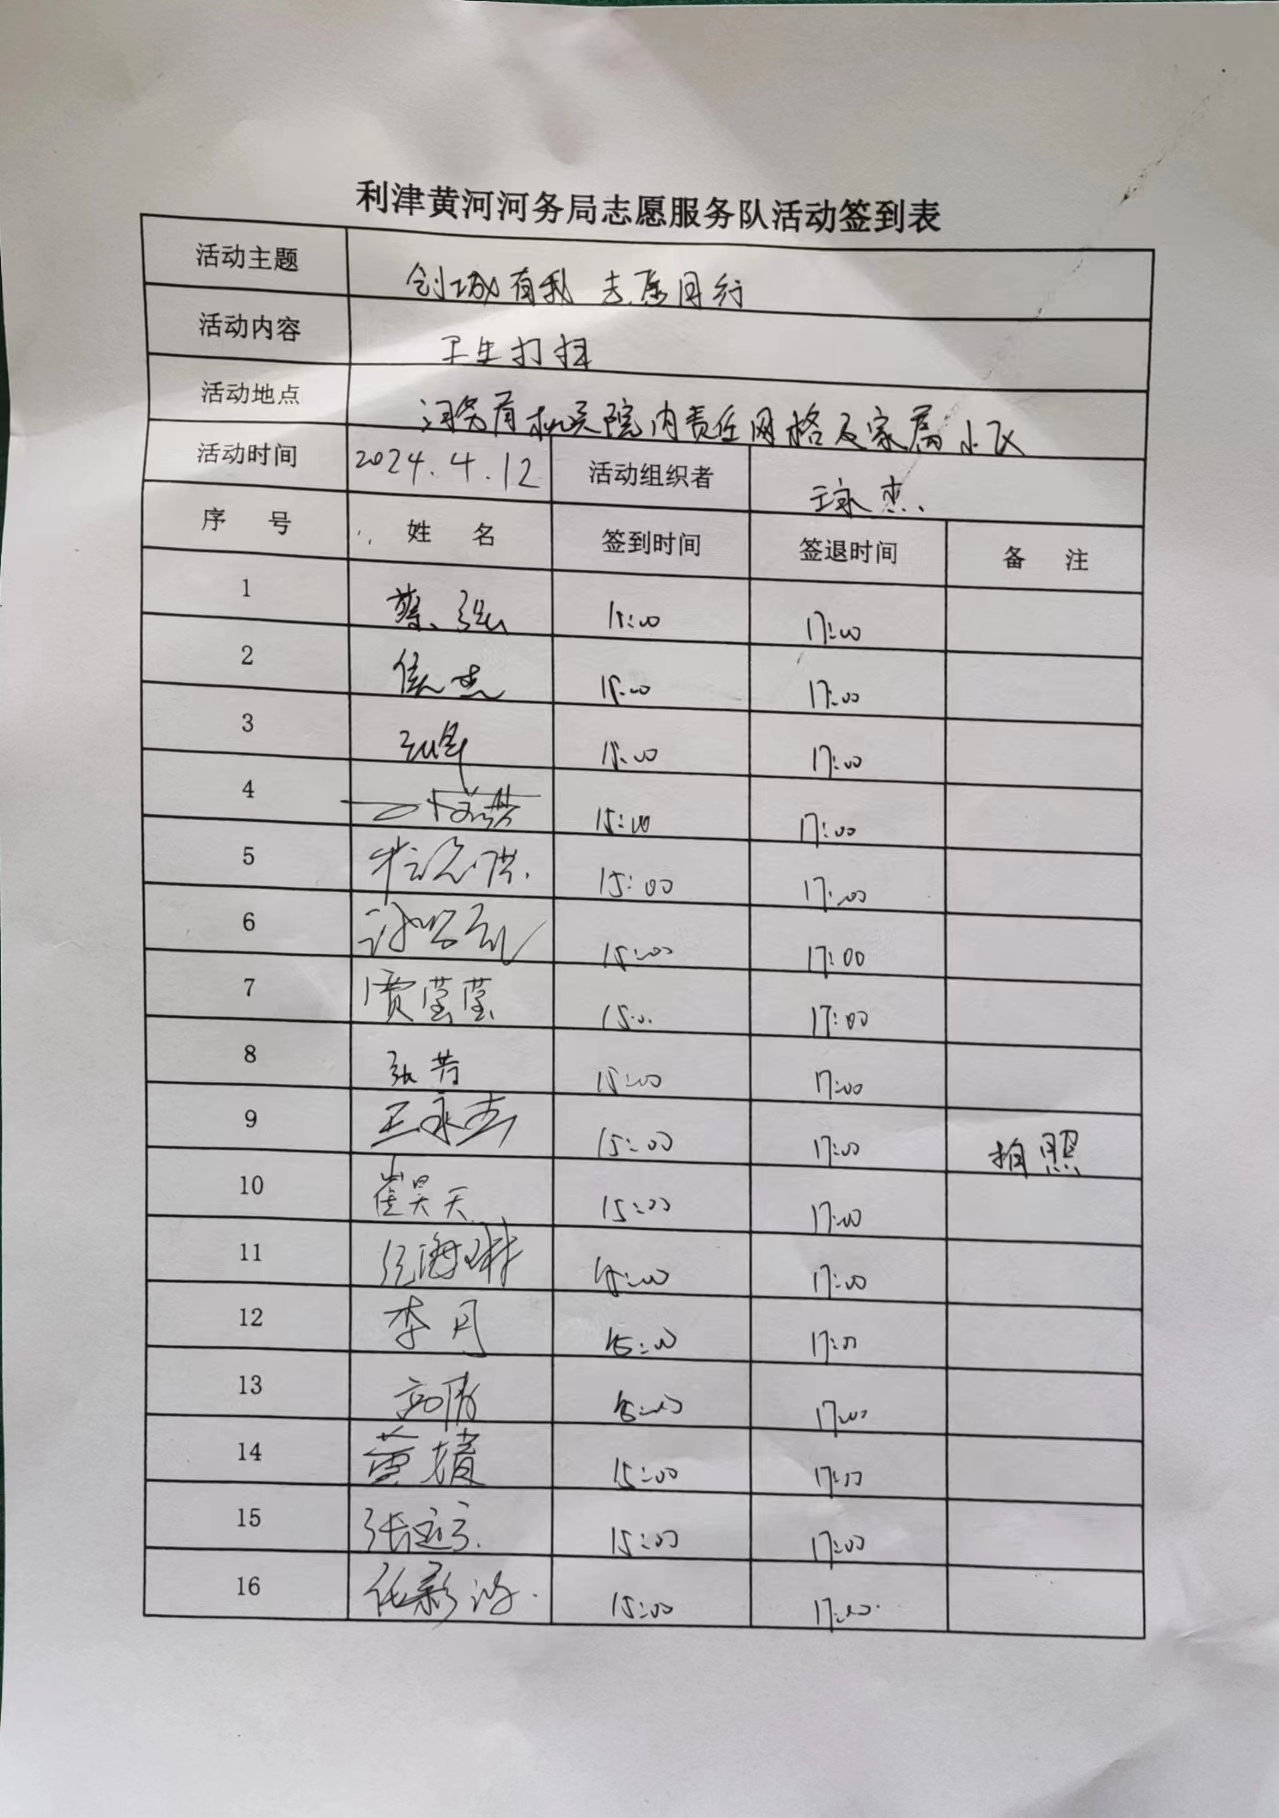 利津黄河河务局志愿服务队活动签到表
活动主题 创城有我 志愿同行
活动内容 卫生打扫
活动地点 河务局机关院内责任网格及家属小区
活动时间 2024.4.12 活动组织者 王永杰
序 号 姓 名 签到时间 签退时间 备 注
1 蔡 强 15:00 17:00
2 侯杰 15:00 17:00
3 15:00 17:00
4 15:00 17:00
5 15:00 17:00
6 15:00 17:00
7 贾莹莹 15:00 17:00
8 张芳 15:00 17:00
9 王永杰 15:00 17:00 拍照
10 崔昊天 15:00 17:00
11 15:00 17:00
12 李月 15:00 17:00
13 15:00 17:00
14 黄婧 15:00 17:00
15 15:00 17:00
16 15:00 17:00